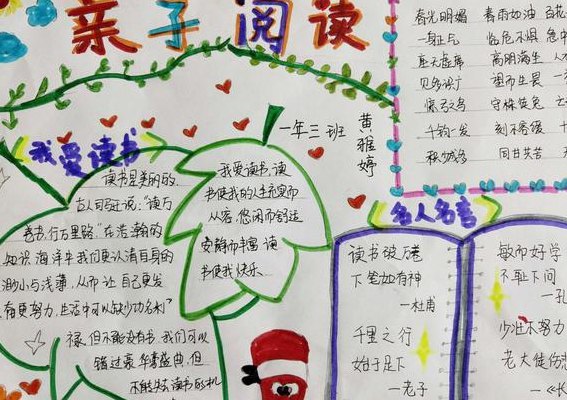 亲子阅读
一年三班
黄雅婷
我爱读书
读书是美丽的.
古人司马迁说:"读万
卷书,行万里路"在浩瀚的
知识海洋中我们更认清自身的
渺小与浅薄,从而让自己更发
有更努力,生活中可以缺少功名利
禄,但不能没有书,我们可以
错过豪华盛典,但
不能失去读书的机
我爱读书,读
书使我的人生充实而
从容,悠闲而舒适
安静而丰富读
书使我快乐
春光明媚 春雨如油 百花
一身正气 临危不惧 急中
座无虚席 高朋满座 人
见多识广 望而生畏 一
惊弓之鸟 守株待兔
千钧一发 刻不容缓 十
同甘共苦
名人名言
读书破万卷
下笔如有神
一杜甫
千里之行
始于足下
一老子
敏而好学
不耻下问
一孔
少壮不努力
老大徒伤悲
一《长